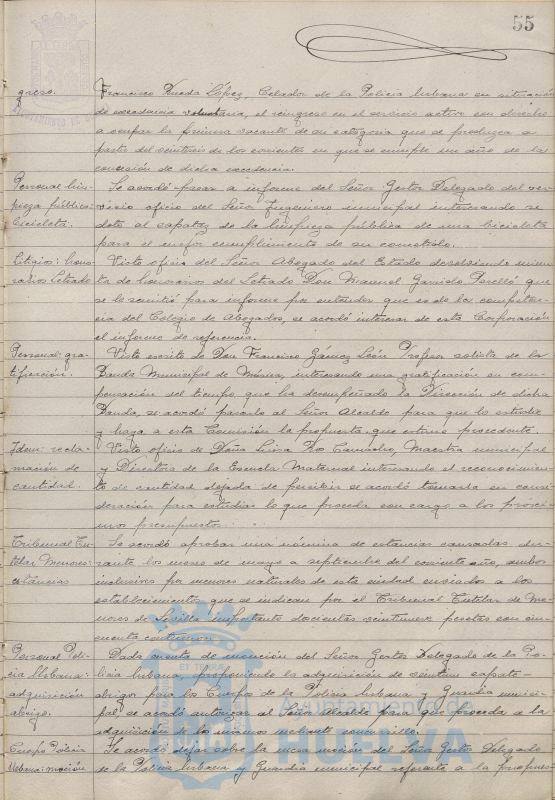 55
greso.
Francisco Rueda López, Celador de la Policia Urbana en situación
de excedencia voluntaria, el reingreso en el servicio activo con derecho
a ocupar la primera vacante de su categoria que se produzca a
partir del veintiseis de los corrientes en que se cumple un año de la
concesión de dicha excedencia.
Personal lim-
pieza pública:
bicicleta.
Se acordó pasar a informe del Señor Gestor Delegado del ser-
vicio oficio del Señor Ingeniero municipal interesando se
dote al capataz de la limpieza pública de una bicicleta
para el mejor cumplimiento de su cometido.
Litigios: hono-
rarios Letrado
Visto oficio del Señor Abogado del Estado devolviendo minu-
ta de honorarios del Letrado Don Manuel Garrido Perelló que
se le remitió para informe por entender que es de la competen-
cia del Colegio de Abogados, se acordó interesar de esta Corporación
el informe de referencia.
Personal: gra-
tificación.
Visto escrito de Don Francisco Gámez León Profesor solista de la
Banda Municipal de Música, interesando una gratificación en com-
pensación del tiempo que ha desempeñado la Dirección de dicha
Banda, se acordó pasarlo al Señor Alcalde para que lo estudie
y haga a esta Comisión la propuesta que estime procedente.
Idem: recla-
mación de
cantidad.
Visto oficio de Doña Luisa Maestra municipal
y Directora de la Escuela Maternal interesando el reconocimien-
to de cantidad dejada de percibir se acordó tomarla en consi-
deración para estudiar lo que proceda con cargo a los próxi-
mos presupuestos.
Tribunal Tu-
telar Menores:
estancias
Se acordó aprobar una nómina de estancias causadas du-
rante los meses de mayo a septiembre del corriente año, ambos
inclusives por menores naturales de esta ciudad enviados a los
establecimientos que se indican por el Tribunal Tutelar de Me-
nores de Sevilla importante doscientas veintinueve pesetas con cin-
cuenta centimos.
Personal Poli-
cia Urbana:
adquisición
abrigo.
Dada cuenta de moción del Señor Gestor Delegado de la Po-
licia Urbana, proponiendo la adquisición de capote-
abrigo para los Cuerpos de la Policia Urbana y Guardia munici-
pal, se acordó autorizar al Señor Alcalde para que proceda a la
adquisición de los mismos mediante concursillo.
Cuerpo Policia
Urbana: moción
Se acordó dejar sobre la mesa moción del Señor Gestor Delegado
de la Policia Urbana y Guardia municipal referente a la
Ayuntamiento de
HUELVA